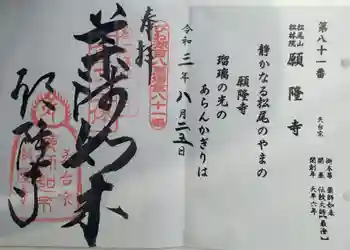 第八十一番
松尾山
松林院
願隆寺
天台宗
御本尊 薬師如来
開基 伝教大師【最澄】
開創年 天平六年
静かなる松尾のやまの
願隆寺
瑠璃の光の
あらんかぎりは
令和三年八月二五日
奉拝
薬師如来
願隆寺